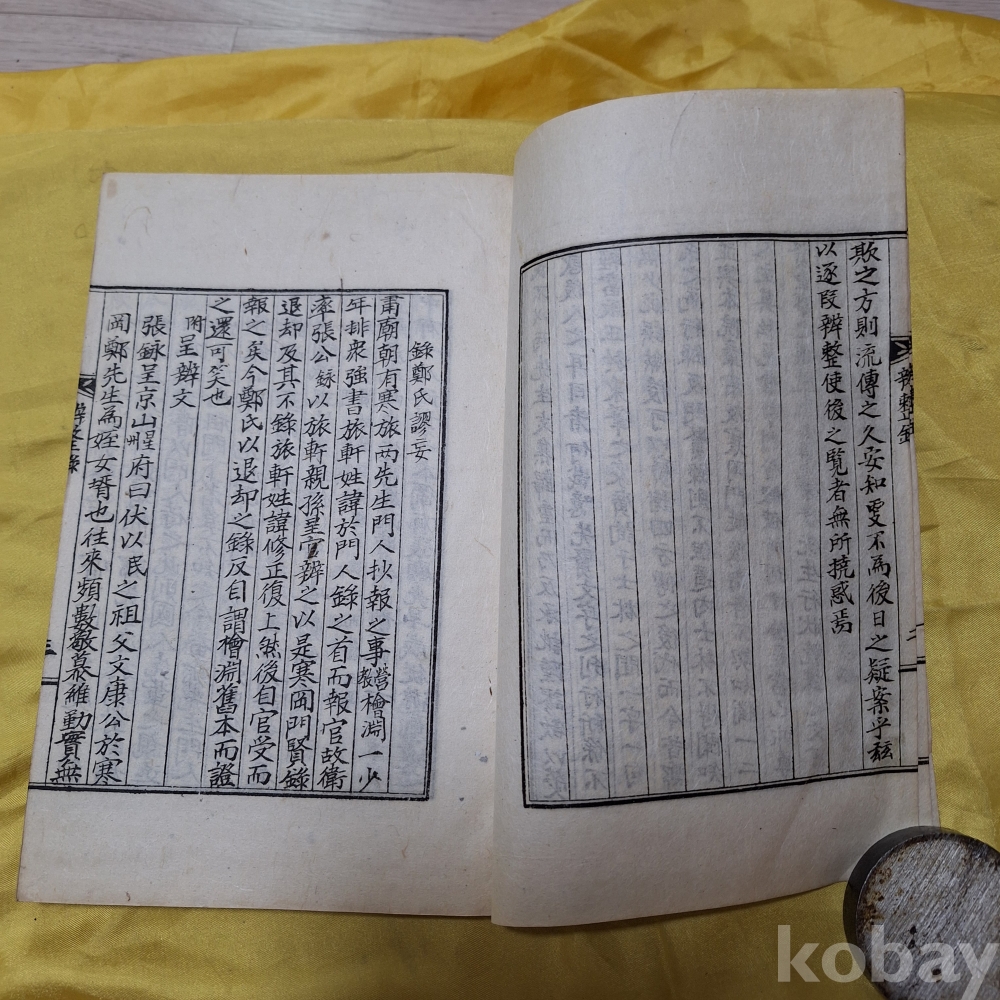 欺之方則流傳之久安知更不爲後日之疑案乎玆
以逐段辨整使後之覽者無所撓惑焉
辨整錄
二
錄鄭氏謬妄
肅廟朝有寒旅兩先生門人抄報之事營檜淵一少
年排衆強書旅軒姓諱於門人錄之首而報官故衛
率張公銾以旅軒親孫呈官辨之以是寒岡門賢錄
退却及其不錄旅軒姓諱修正復上然後自官受而
報之矣今鄭氏以退却之錄反自謂檜淵舊本而證
之還可笑也
附呈辨文
張銾呈京山星州府曰伏以民之祖父文康公於寒
岡鄭先生爲姪女壻也往來頻數敬慕維動實無
辨整錄
三
kobay